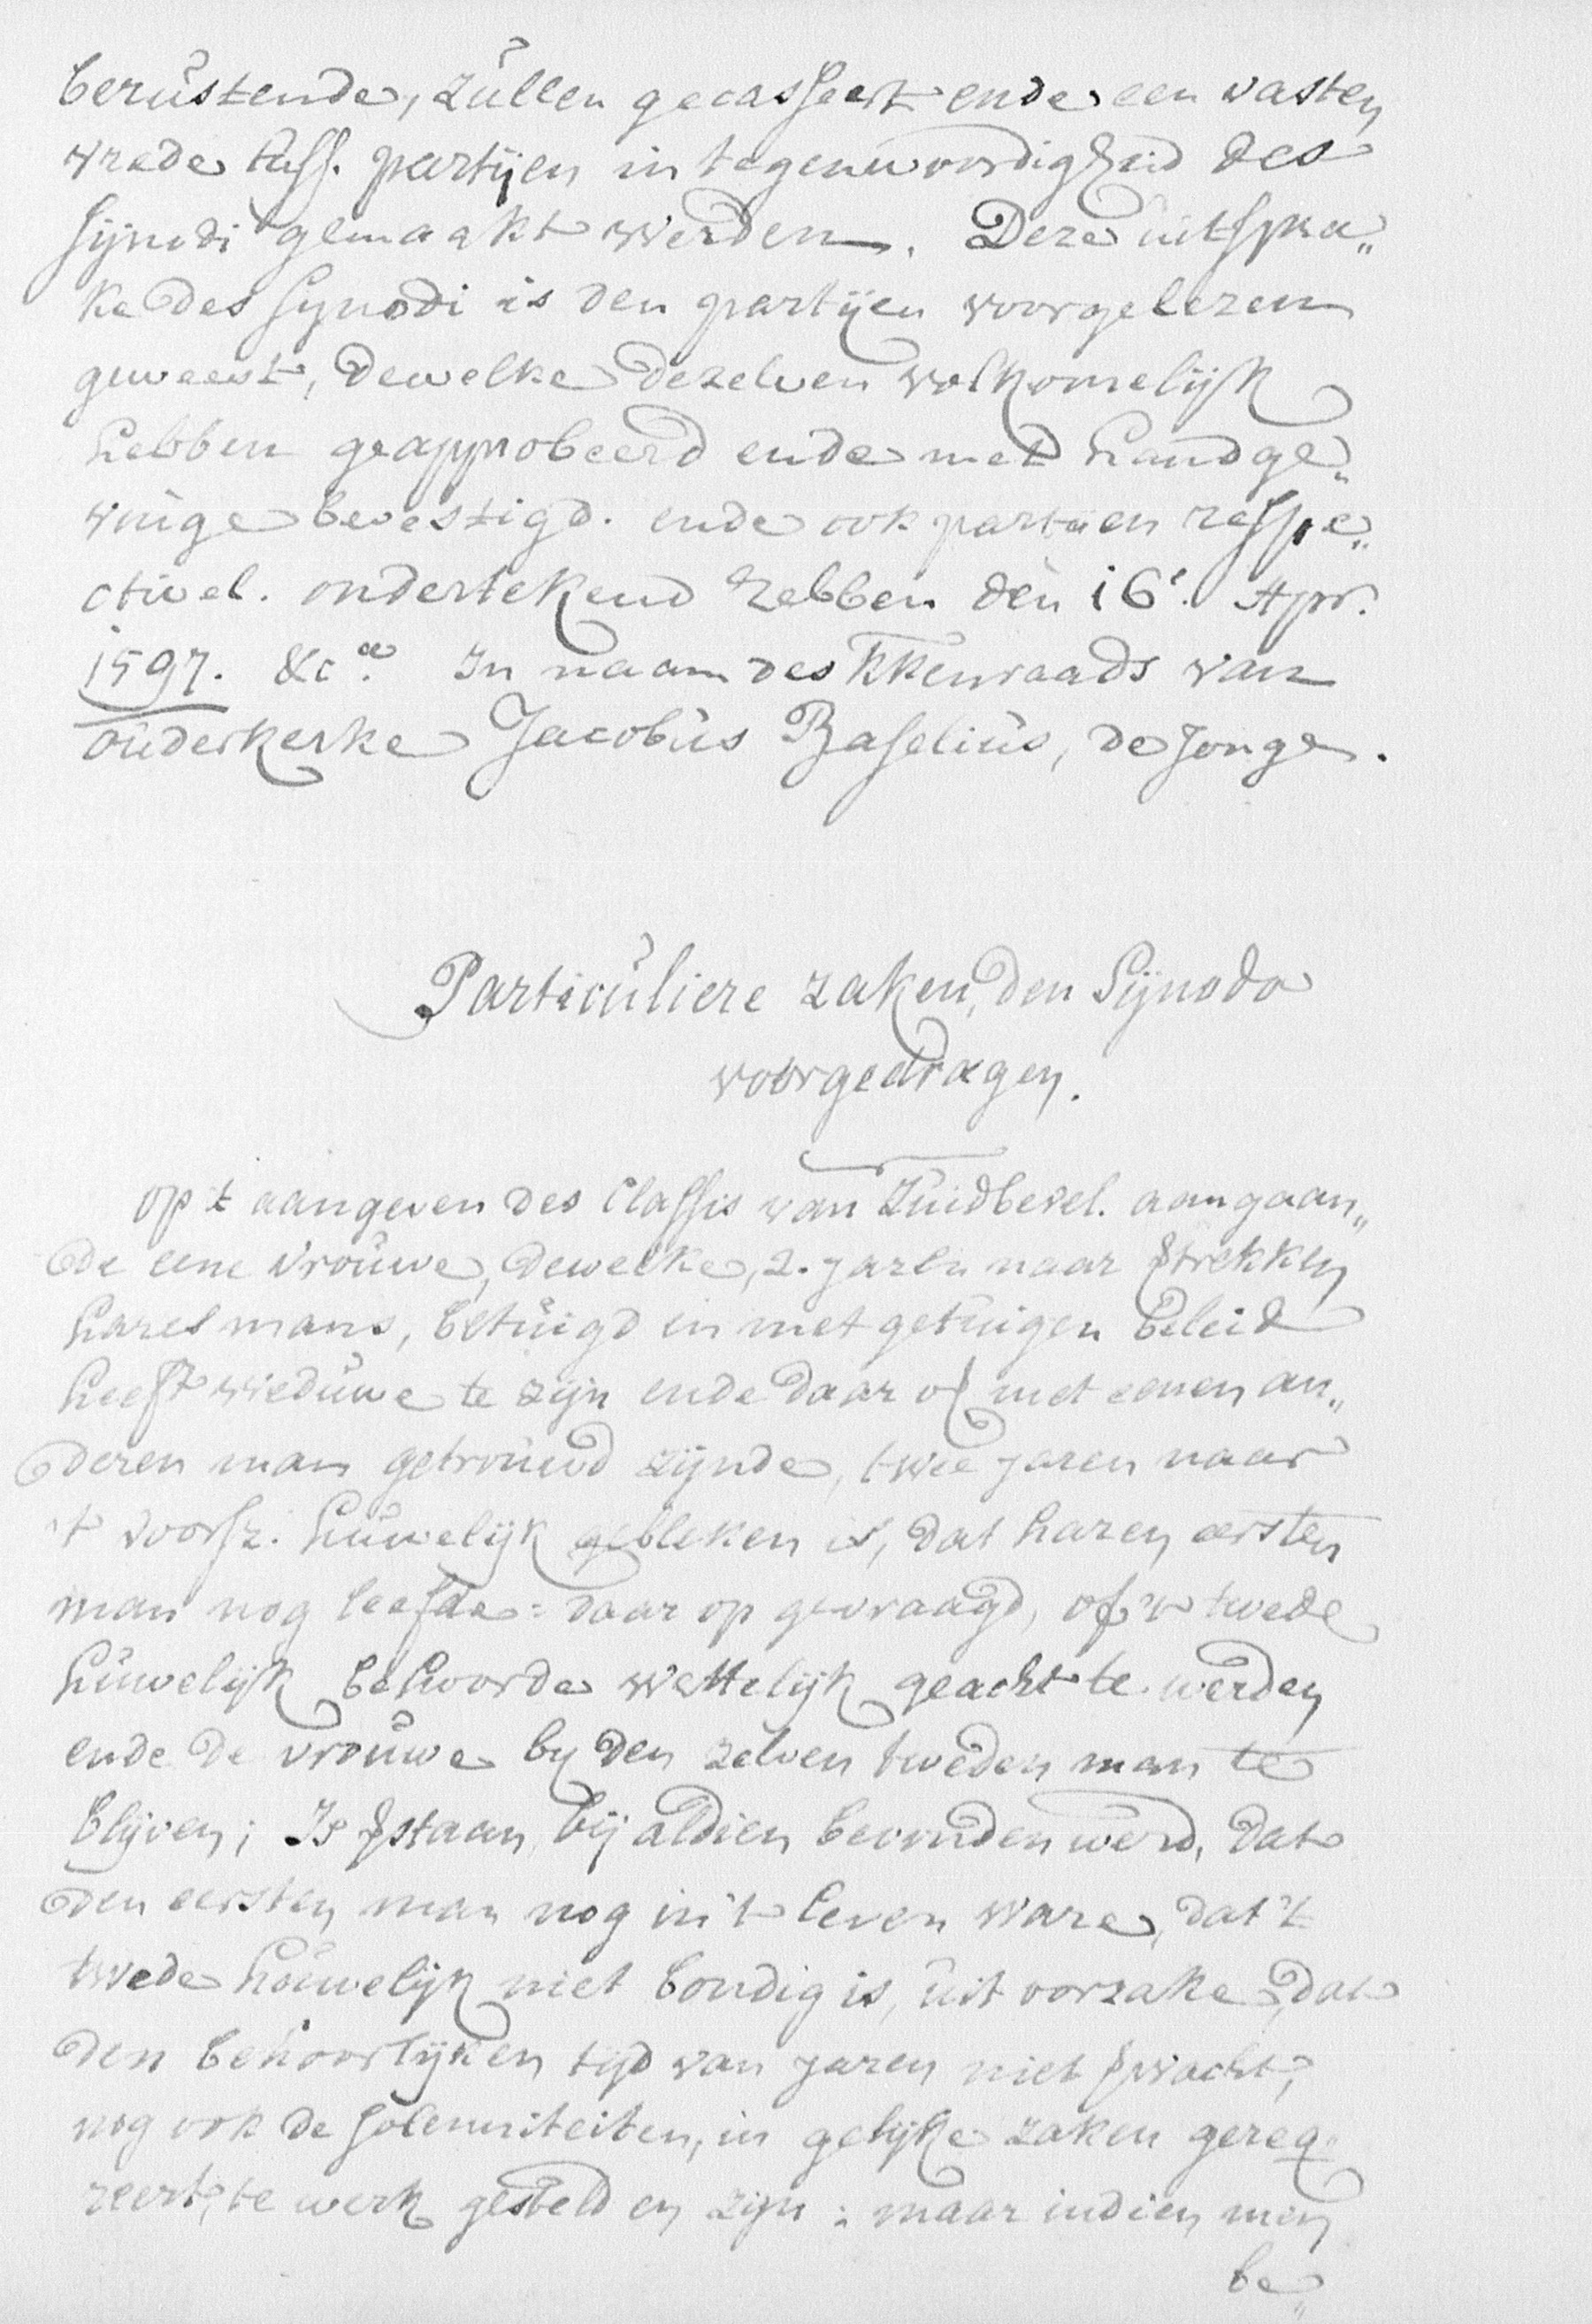 berustende, zullen gecasseert ende een vasten
vrede tuss. partijen in tegenwoordigheid des
Synodi gemaakt werden. Deze uitspra„
ke des Synodi is den partijen voorgelezen
geweest, dewelke dezelven volkomelijk
hebben geapprobeerd ende met handge„
vinge bevestigd. ende ook partijen respe„
ctivel. ondertekend hebben den 16e. Apr.
1597. &ca. In naam des KKenraads van
ouderkerke Jacobus Baselius, de Jonge.
Particuliere zaken, den Synodo
voorgedragen.
op t aangeven des Classis van Zuidbevel. aangaan„
de eene vrouwe, dewelke, 2. jaren naar strekken
hares mans, betuigd en met getuigen beleid
heeft wieduwe te zijn ende daar of met eenen an„
deren man getrouwd zijnde, twee jaren naar
't voorsz. huwelijk gebleken is, dat haren eersten
man nog leefde: daar op gevraagd, of 't twede
huwelijk behoorde wettelijk geacht te werden
ende de vrouwe by den zelven tweden man te
blijven; Is staan, bij aldien bevonden werd, dat
den eersten man nog in 't leven ware, dat 't
twede houwelijk niet bondig is, uit oorzake, dat
den behoorlijken tijd van jaren niet wacht,
nog ook de solemniteiten, in gelijke zaken gereq„
reert, te werk gesteld en zijn: maar indien men
be„